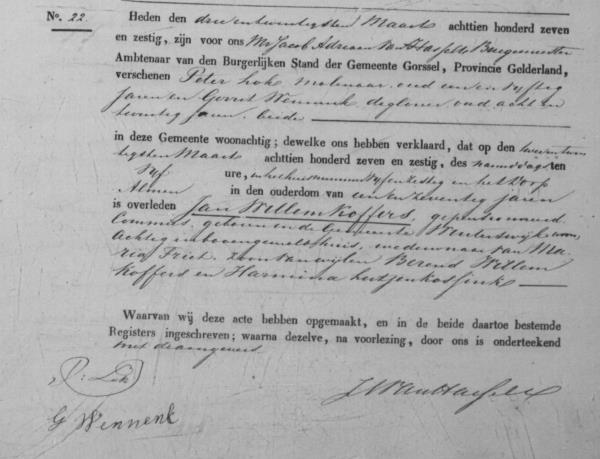 No. 22.
Heden den drie en twentigsten Maart achttien honderd zeven
en zestig, zijn voor ons Mr Jacob Adriaan van Hasselt Burgemeester
Ambtenaar van den Burgerlijken Stand der Gemeente Gorssel, Provincie Gelderland,
verschenen Peter Lok molenaar oud een en vyftig
jaren en Gerrit Wennenk, daglooner oud acht en
twentig jaren beide
in deze Gemeente woonachtig; dewelke ons hebben verklaard, dat op den twee en twen
tigsten Maart achttien honderd zeven en zestig, des namiddags ten
vyf ure, in het huis nummer vyf en zestig in het Dorp
Almen in den ouderdom van een en zeventig jaren
is overleden Jan Willem Koffers, gepensioneerd
Commies, geboren in de Gemeente Winterswijk, woon
achtig in bovengemeld huis, weduwnaar van Ma
ria Frich. zoon van wijlen Berend Willem
Koffers en Harmina
Waarvan wij deze acte hebben opgemaakt, en in de beide daartoe bestemde
Registers ingeschreven; waarna dezelve, na voorlezing, door ons is onderteekend
met de aangevers.
P: Lok
JA van Hasselt
G Wennenk